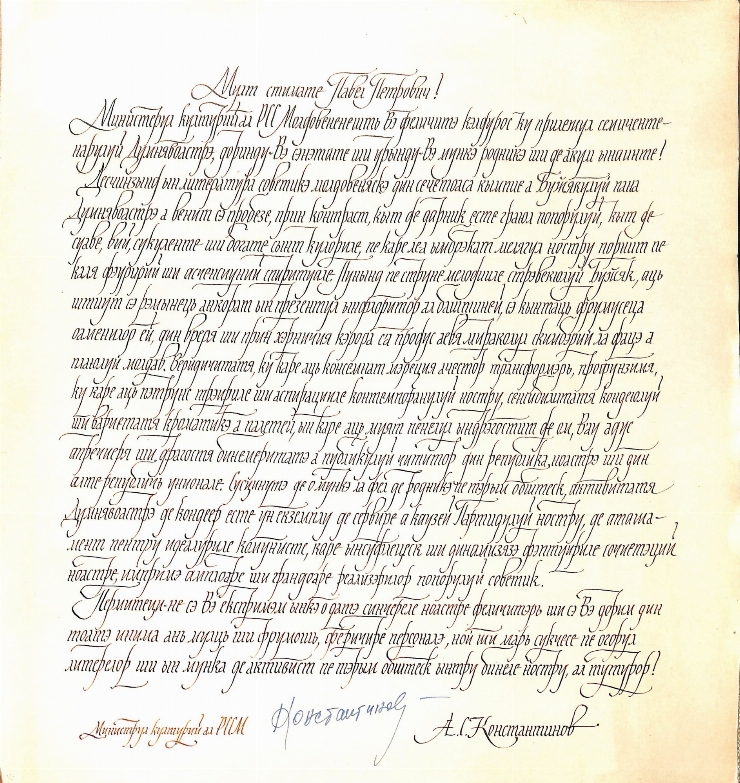 Мулт стимате Павел Петрович!
Министерул културий ал РСС Молдовенешть Вэ феличитэ кэлдурос ку прилежул семиченте-
нарулуй Думнявоастрэ, доринду-Вэ сэнэтате ши урынду-Вэ мункэ родникэ ши де акум ынаинте!
Десчинзынд ын литература советикэ молдовеняскэ дин сечетоаса кымпие а Буӂякулуй паша
Думнявоастрэ а венит сэ пробезе, прин контраст, кыт де дарник есте граюл попорулуй, кыт де
суаве, вий, сукуленте ши богате сынт кулориле, пе каре ле-а ымбрэкат мелягул ностру порнит пе
каля фэуририй ши асчепсиуний спиритуале. Пунынд пе струне мелодииле стрэвекюлуй Буӂяк, аць
штиут сэ рэмынець анкорат ын презентул ынфлоритор ал баштиней, сэ кынтаць фрумусеца
оаменилор ей, дин вреря ши прин хэрничия кэрора са продус аевя мираколул скимбэрий ла фацэ а
плаюлуй молдав. Веридичитатя, ку каре аць консемнат мэреция ачестор трансформэрь, профунзимя,
ку каре аць пэтрунс трэириле ши аспирацииле контемпоранулуй ностру, сенсибилитатя кондеюлуй
ши вариетатя кроматикэ а палетей, ын каре аць муят пенелул ындрэгостит де ом, В-ау адус
пречиеря ши драгостя бинемеритатэ а публикулуй чититор дин република ноастрэ ши дин
алте републичь унионале. Сусцинутэ де о мункэ ла фел де родникэ пе тэрым обштеск, активитатя
Думнявоастрэ де кондеер есте ун екземплу де сервире а каузей Партидулуй ностру, де аташа-
мент пентру идеалуриле комунисте, каре ынсуфлецеск ши динамизязэ фэптуириле сочиетэций
ноастре, имприма амплоаре ши грандоаре реализэрилор попорулуй советик.
Пермитеци-не сэ Вэ експримэм ынкэ о датэ синчереле ноастре феличитэрь ши сэ Вэ дорим дин
тоатэ инима ань мулць ши фрумошь, феричире персоналэ, ной ши марь сукчесе пе огорул
литерелор ши ын мунка де активист пе тэрым обштеск ынтру бинеле ностру, ал тутурор!
Министрул културий ал РССМ Константинов А.С.Константинов